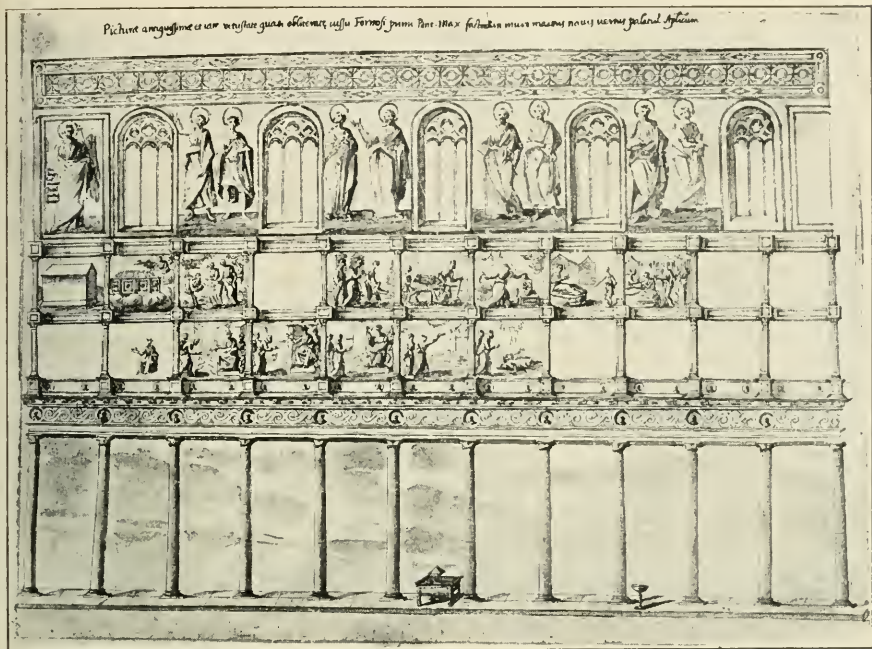 Picture antiquissime et iam vetustate quasi obliterate, iussu Formosi primi Pont. Max in muro maioris navis versus palatiū Aplicum